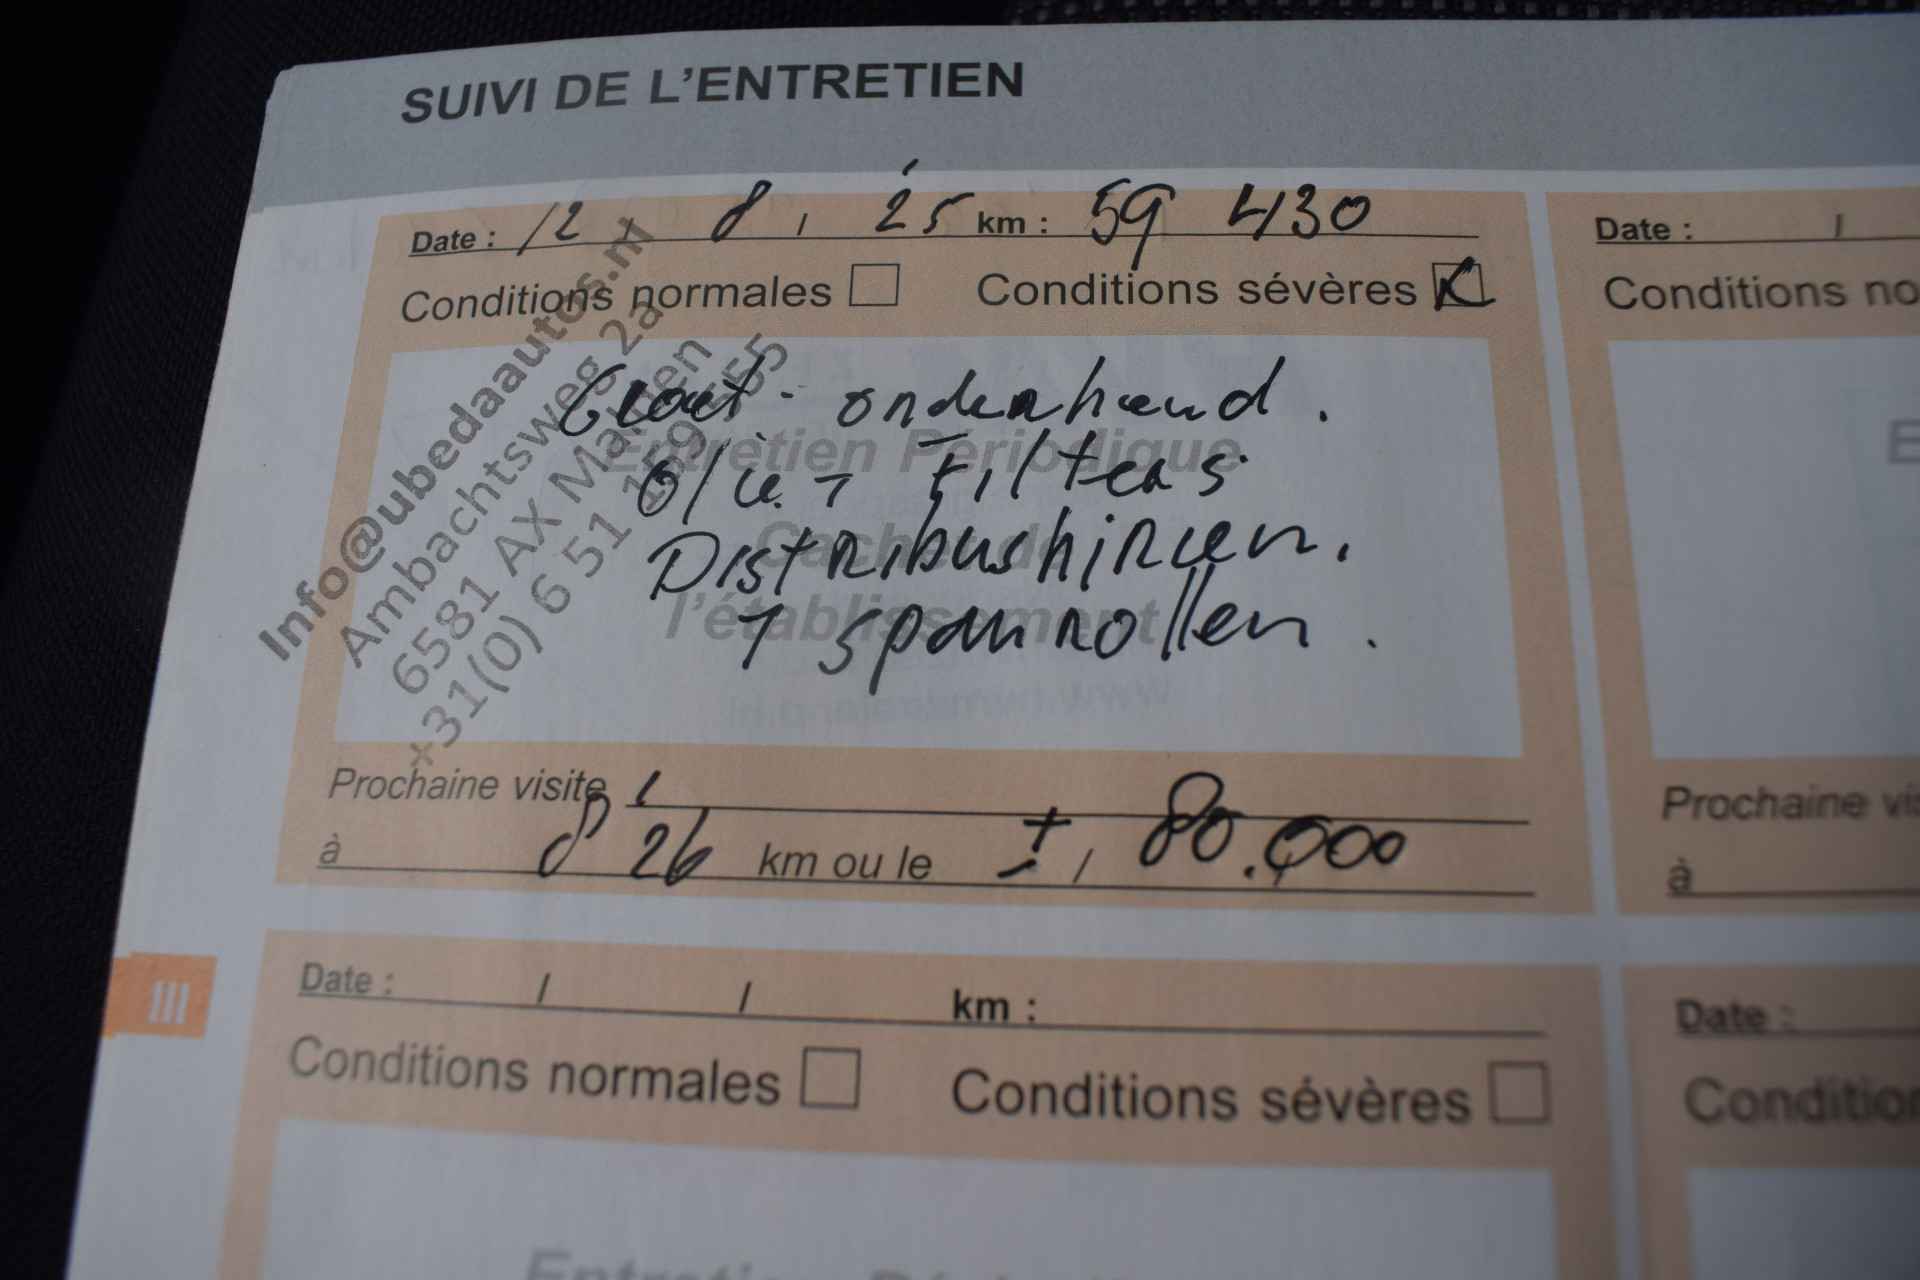 SUIVI DE L'ENTRETIEN
Date : 12 / 8 / 25 km : 59 430
Date : /
Conditions normales Conditions sévères
Conditions no
Groot - onderhoud.
Entretien Périodique
olie + Filters
Cachet de
Distributieriem.
l'établissement
+ spanrollen.
Info@ubedaautos.nl
Ambachtsweg 2a
6581 AX Malden
+31(0) 6 51
Prochaine visite
à 8 26 km ou le ± / 80.000
Prochaine vis
à
III
Date : / / km :
Date :
Conditions normales Conditions sévères
Condition